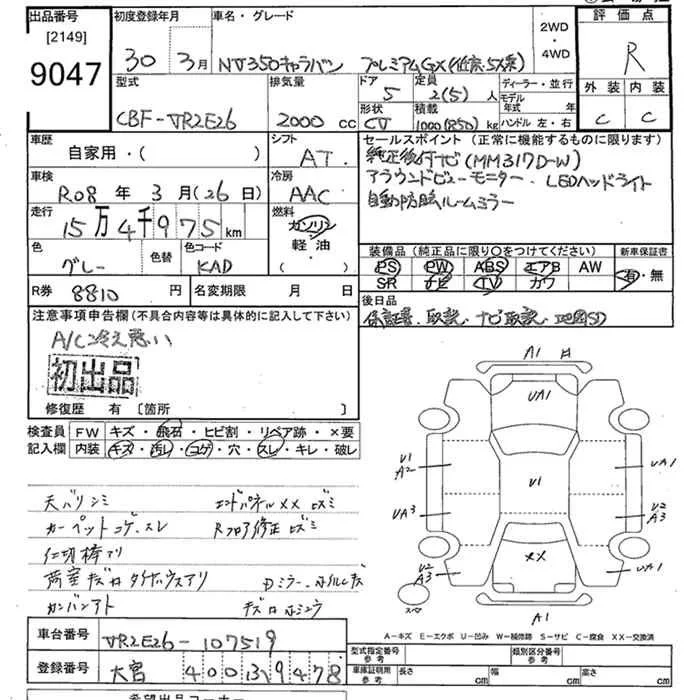 出品番号
[2149]
9047
初度登録年月
30年 3月
車名・グレード
NV350キャラバン プレミアムGX(低床.5ドア)
2WD
・
4WD
評価点
R
外装 内装
C C
型式
CBF-VR2E26
排気量
2000 cc
ドア
5
定員
2(5)人
形状
CV
積載
1000(850)kg
ディーラー・並行
モデル年式 年
ハンドル 左・右
車歴
自家用・( )
シフト
AT
車検
R08年 3月(26日)
冷房
AAC
走行
15万4千975km
燃料
ガソリン
軽油
・
( )
色
グレー
色替
色コード
KAD
R券 8810円
名変期限 月 日
セールスポイント(正常に機能するものに限ります)
純正後付ナビ(MM317D-W)
アラウンドビューモニター・LEDヘッドライト
自動防眩ルームミラー
装備品(純正品に限り〇をつけてください)
新車保証書
PS PW ABS エアB AW
SR ナビ TV カワ
有・無
後日品
保証書.取説.ナビ取説.地図SD
注意事項申告欄(不具合内容等は具体的に記入して下さい)
A/C冷え悪い
初出品
修復歴 有 [箇所 ]
検査員
記入欄
FW キズ・飛石・ヒビ割・リペア跡・×要
内装 キズ・汚れ・コゲ・穴・スレ・キレ・破レ
天バリシミ エンドパネルXX ズミ
カーペットコゲ.スレ Rフロア修正 ズミ
仕切棒アリ
荷室キズロ タイヤハウスアリ
カンバンアト
A1
UA1
U1
A2
U1
UA1
UA3
U2
A3
XX
U2
A3
UA1
スペア
A1
A−キズ E−エクボ U−凹み W−補修跡 S−サビ C−腐食 XX−交換済
車台番号 VR2E26-107519
登録番号 大宮 400 319478
型式指定番号
参考
類別区分番号
参考
車庫証明用
参考
長さ cm
幅 cm
高さ cm
希望出品コーナー